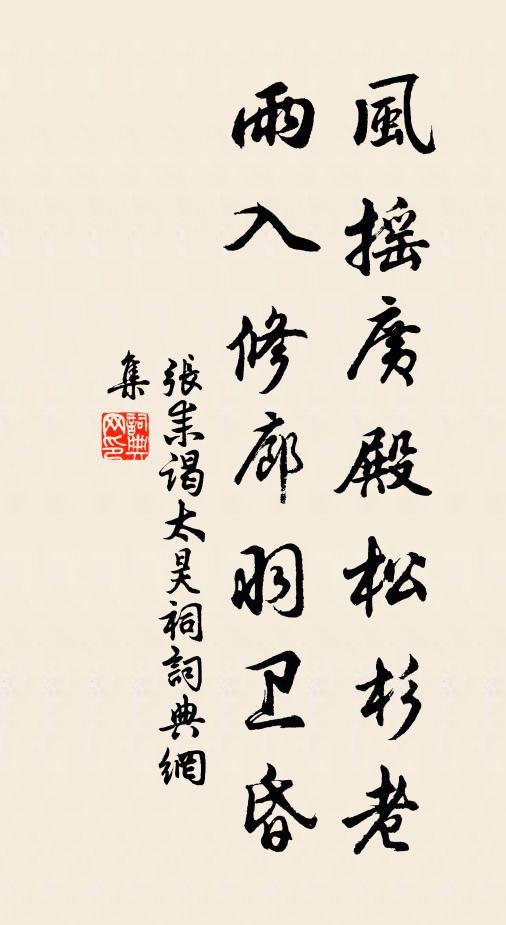 風摇廣殿松杉老
雨入修廊羽卫昏
張耒謁太昊祠詞典網
集
詞典
网印